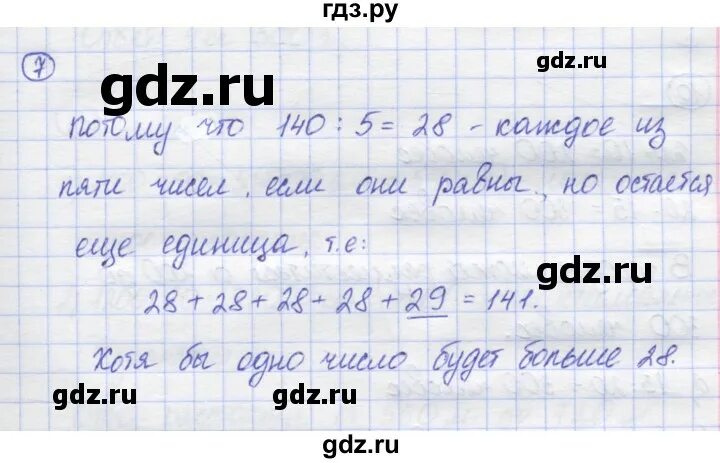 гдз.ру
7
gdz.ru
gdz.ru
Потому что 140 : 5 = 28 - каждое из
пяти чисел, если они равны, но остается
еще единица, т.е:
gdz.ru
28 + 28 + 28 + 28 + 29 = 141.
Хотя бы одно число будет больше 28.
gdz.ru
gdz.ru
gdz.ru